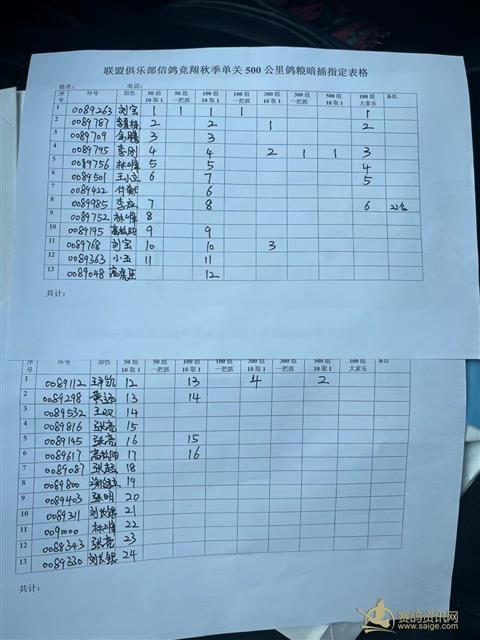 联盟俱乐部信鸽竞翔秋季单关 500 公里鸽粮暗插指定表格
姓名: 电话:
序号 环号 羽色 50 组 10 取 1 50 组 一把抓 100 组 10 取 1 100 组 一把抓 300 组 10 取 1 300 组 一把抓 500 组 10 取 1 100 组 大家乐 备注
1 0089263 刘宝 1 1 1 1 1
2 0089787 2 2 1 2
3 0089709 3 3
4 0089795 李刚 4 4 2 1 1 3
5 0089756 林峰 5 5 4
6 0089501 王小立 6 7 5
7 0089422 6
8 0089985 7 8 6
9 0089752 林峰 8
10 0089195 高松阳 9 9
11 0089768 刘宝 10 10 3
12 0089363 小五 11 11
13 0089048 12
共计:
序号 环号 羽色 50 组 10 取 1 50 组 一把抓 100 组 10 取 1 100 组 一把抓 300 组 10 取 1 300 组 一把抓 500 组 10 取 1 100 组 大家乐 备注
1 0089112 12 13 4 2
2 0089298 13 14
3 0089532 王双 14
4 0089816 张亮 15
5 0089145 张亮 16 15
6 0089617 高松阳 17 16
7 0089087 18
8 0089800 19
9 0089403 张明 20
10 0089311 刘长银 21
11 林峰 22
12 0088343 张亮 23
13 0089330 刘长银 24
共计:
赛鸽资讯网
www.saige.com